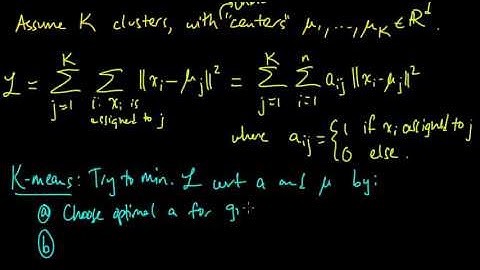 Assume K clusters, with "centers" μ₁, ..., μ_K ∈ ℝᵈ.
ℒ = Σ_{j=1}^{K} Σ_{i: x_i is assigned to j} ‖x_i − μ_j‖² = Σ_{j=1}^{K} Σ_{i=1}^{n} a_{ij} ‖x_i − μ_j‖²
where a_{ij} = { 1 if x_i assigned to j
0 else.
K-means: Try to min. ℒ wrt a and μ by:
ⓐ Choose optimal a for
ⓑ